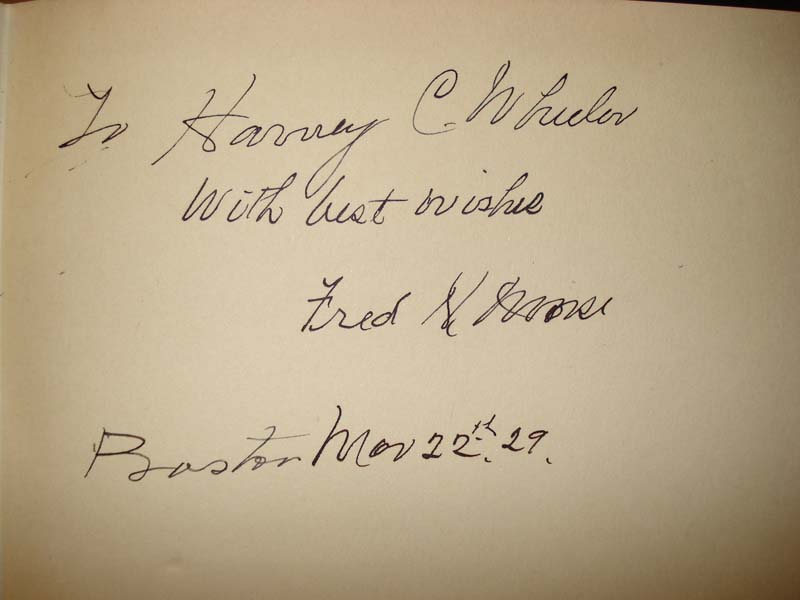 To Harvey C. Wheeler
With best wishes
Fred
Boston Nov 22th. 29.